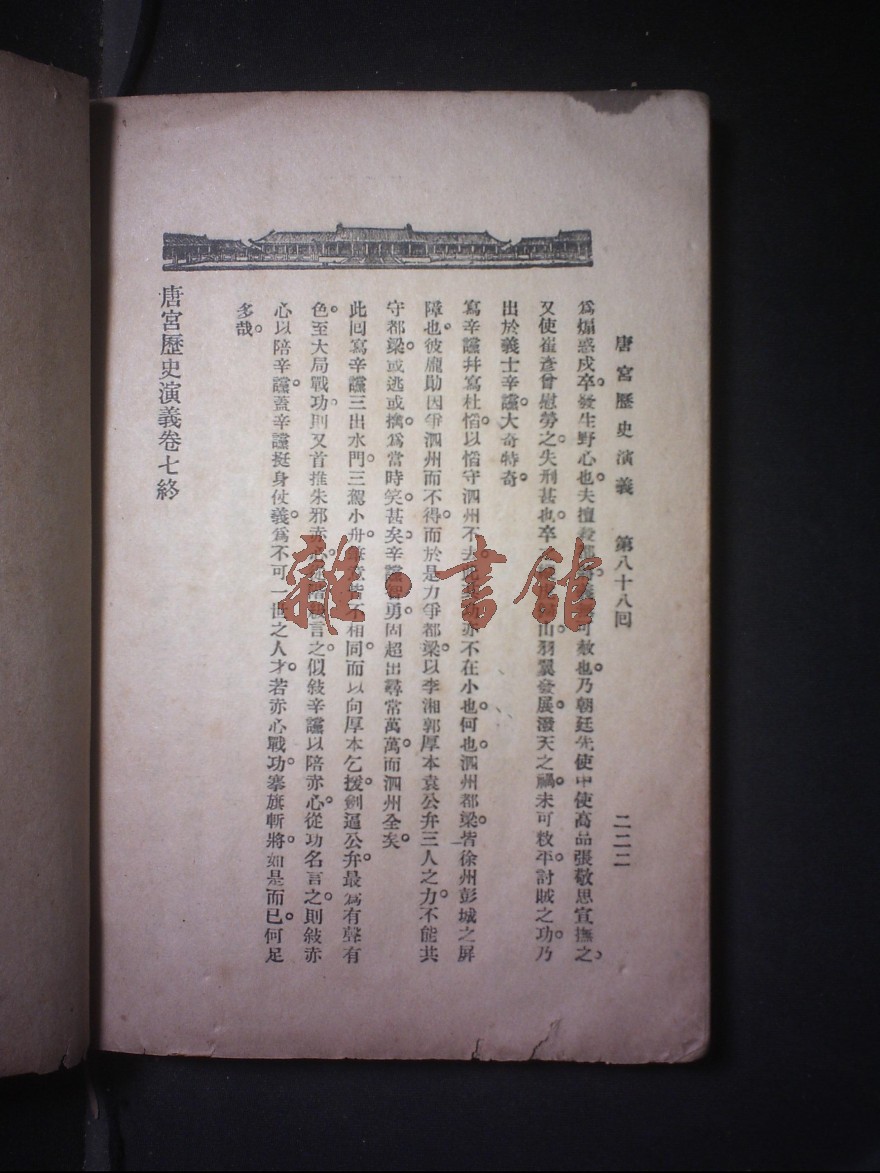 唐宮歷史演義　第八十八回　二二二
爲煽惑戍卒。發生野心也。夫擅殺都可赦也。乃朝廷先使中使高品張敬思宣撫之。
又使崔彥曾慰勞之。失刑甚也。卒山羽翼發展。潑天之禍。未可敉平。討賊之功。乃
出於義士辛讜。大奇特奇。
寫辛讜幷寫杜慆。以慆守泗州不去。亦不在小也。何也。泗州都梁。皆徐州彭城之屏
障也。彼龐勛因爭泗州而不得。而於是力爭都梁。以李湘郭厚本袁公弁三人之力。不能共
守都梁。或逃或擒。爲當時笑。甚矣。辛讜智勇。固超出尋常萬萬。而泗州全矣。
此回寫辛讜三出水門。三駕小舟。不相同。而以向厚本乞援。劍逼公弁。最爲有聲有
色。至大局戰功。則又首推朱邪赤心。言之。似敍辛讜以陪赤心。從功名言之。則敍赤
心以陪辛讜。蓋辛讜挺身仗義。爲不可一世之人才。若赤心戰功。搴旗斬將。如是而已。何足
多哉。
唐宮歷史演義卷七終
雜·書館